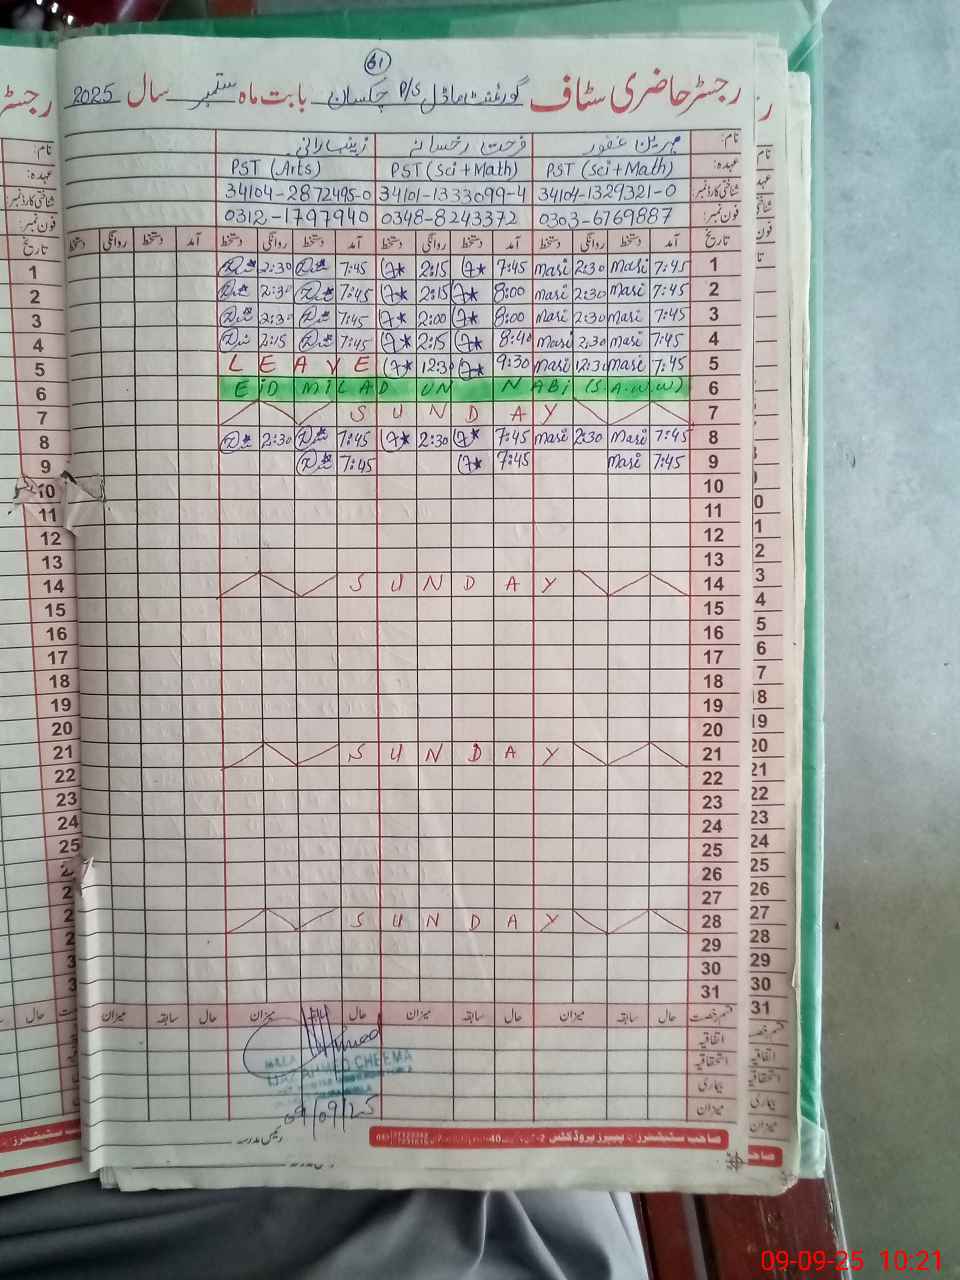 61
رجسٹر حاضری سٹاف گورنمنٹ ماڈل P/S چکسان بابت ماہ ستمبر سال 2025
نام: مہرین غفور فرحت رخسانہ زینب رانی
عہدہ: PST (Sci+Math) PST (Sci+Math) PST (Arts)
شناختی کارڈ نمبر: 34104-1329321-0 34101-1333099-4 34104-2872495-0
فون نمبر: 0303-6769887 0348-8243372 0312-1797940
تاریخ آمد دستخط روانگی دستخط آمد دستخط روانگی دستخط آمد دستخط روانگی دستخط آمد دستخط روانگی دستخط
1 7:45 Masi 2:30 Masi 7:45 2:15 7:45 2:30
2 7:45 Masi 2:30 Masi 8:00 2:15 7:45 2:30
3 7:45 Masi 2:30 Masi 8:00 2:00 7:45 2:30
4 7:45 Masi 2:30 Masi 8:40 2:15 7:45 2:15
5 7:45 Masi 12:30 Masi 9:30 12:30 LEAVE
6 EiD MiLAD UN NABi (S.A.W.W)
7 SUNDAY
8 7:45 Masi 2:30 Masi 7:45 2:30 7:45 2:30
9 7:45 Masi 7:45 7:45
10
11
12
13
14 SUNDAY
15
16
17
18
19
20
21 SUNDAY
22
23
24
25
26
27
28 SUNDAY
29
30
31
قسم رخصت حال سابقہ میزان حال سابقہ میزان حال سابقہ میزان حال سابقہ میزان
اتفاقیہ
استحقاقیہ
بیماری
میزان
AHMED CHEEMA
09/09/25
رئیس مدرسہ
صاحب سٹیشنرز اینڈ پیپرز پروڈکٹس
09-09-25 10:21